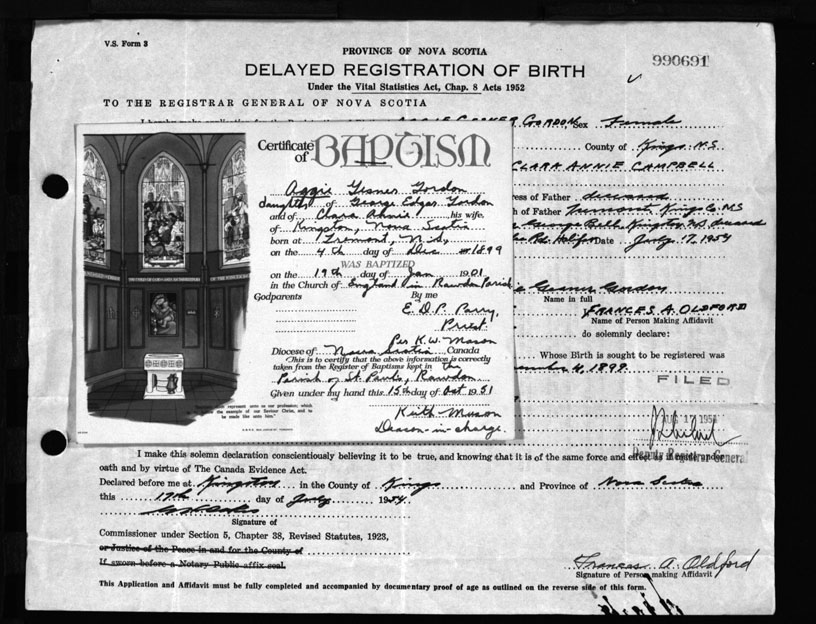 V.S. Form 3
PROVINCE OF NOVA SCOTIA
990691
DELAYED REGISTRATION OF BIRTH
Under the Vital Statistics Act, Chap. 8 Acts 1952
TO THE REGISTRAR GENERAL OF NOVA SCOTIA
GORDON, Sex Female
County of Kings N.S.
CLARA ANNIE CAMPBELL
Address of Father deceased
of Father
Date July 17, 1954
Name in full
FRANCES A. OLDFORD
Name of Person Making Affidavit
do solemnly declare:
Whose Birth is sought to be registered was
4, 1899.
FILED
AUG 17 1954
Deputy Registrar General
Certificate of BAPTISM
Aggie Gesner Gordon
daughter of George Edgar Gordon
and of Clara Annie his wife.
of Kingston, Nova Scotia
born at Tremont, N.S.
on the 4th day of Dec 1899
WAS BAPTIZED
on the 19th day of Jan 1901
in the Church of England in Rawdon Parish
Godparents By me
E. D. P. Parry,
Priest.
Per K.W. Mason
Diocese of Nova Scotia, Canada
This is to certify that the above information is correctly
taken from the Register of Baptisms kept in the
Parish of St. Pauls, Rawdon
Given under my hand this 15th day of Oct 1951
Keith Mason
Deacon-in-charge.
represent unto us our profession; which
the example of our Saviour Christ, and to
be made like unto him."
I make this solemn declaration conscientiously believing it to be true, and knowing that it is of the same force and effect as if made under
oath and by virtue of The Canada Evidence Act.
Declared before me at Kingston in the County of Kings and Province of Nova Scotia
this 17th day of July 1954
Signature of
Commissioner under Section 5, Chapter 38, Revised Statutes, 1923,
or Justice of the Peace in and for the County of
If sworn before a Notary Public affix seal.
Frances A. Oldford
Signature of Person making Affidavit
This Application and Affidavit must be fully completed and accompanied by documentary proof of age as outlined on the reverse side of this form.